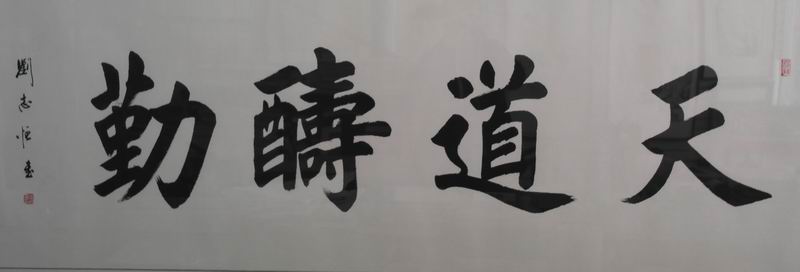 天道醻勤
劉志恒書